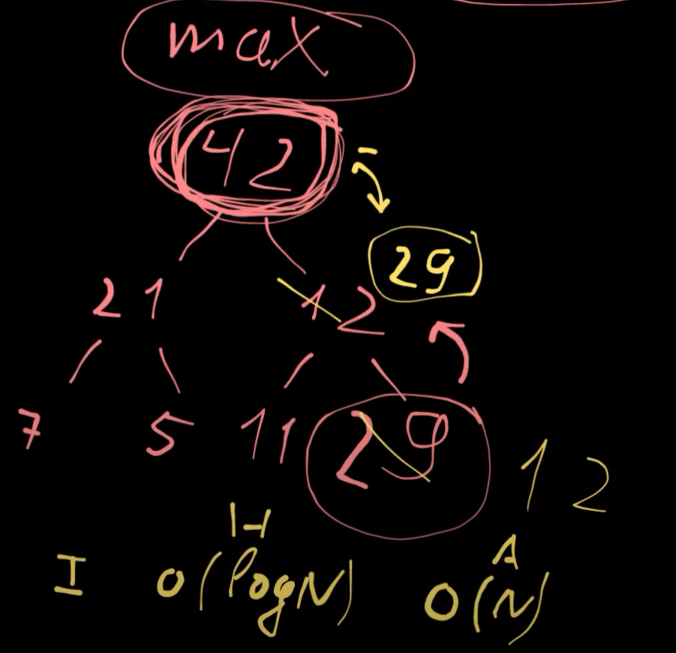 max
42
29
21 12
7 5 11 29 12
H A
I O(logN) O(N)